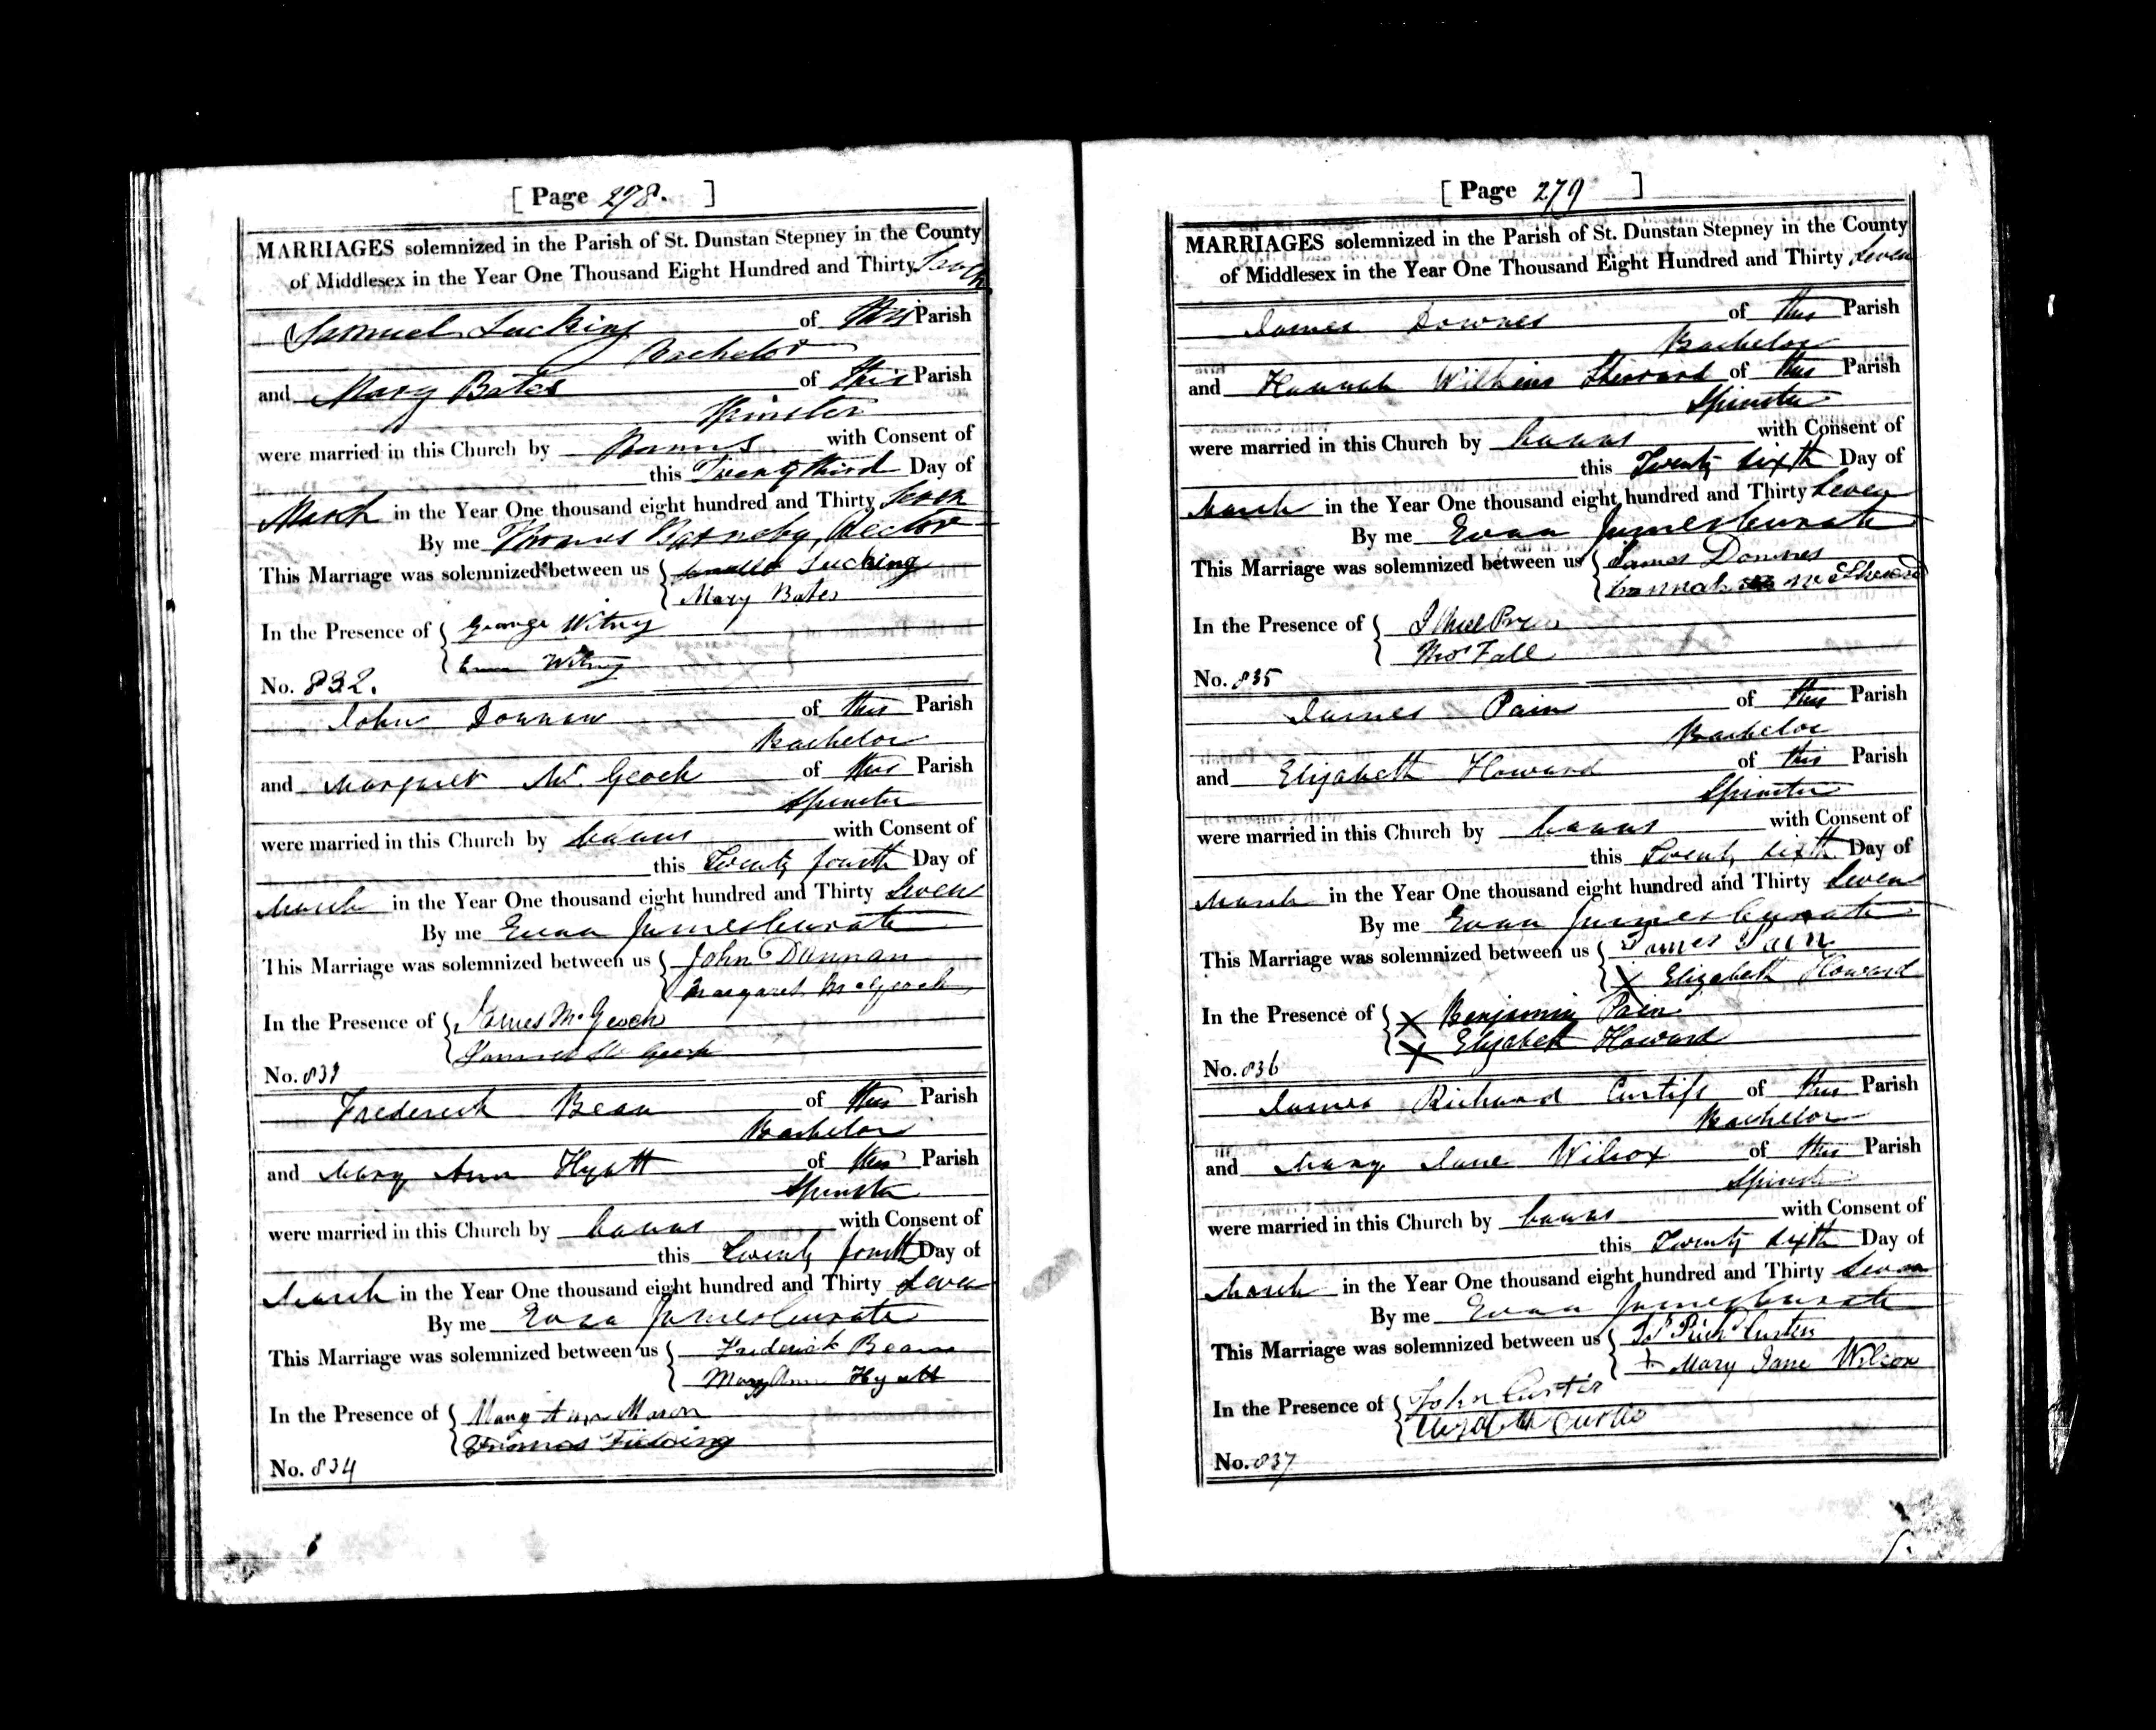 [ Page 278. ]
MARRIAGES solemnized in the Parish of St. Dunstan Stepney in the County
of Middlesex in the Year One Thousand Eight Hundred and Thirty Seven
Samuel Lucking of this Parish
Bachelor
and Mary Bates of this Parish
Spinster
were married in this Church by Banns with Consent of
this Twenty third Day of
March in the Year One thousand eight hundred and Thirty Seven
By me Thomas Barneby, Rector
This Marriage was solemnized between us { Lucking
Mary Bates
In the Presence of { George Witney
Witney
No. 832.
John Donnan of this Parish
Bachelor
and Margaret Mc Geoch of this Parish
Spinster
were married in this Church by banns with Consent of
this Twenty fourth Day of
March in the Year One thousand eight hundred and Thirty Seven
By me Evan James Curate
This Marriage was solemnized between us { John Dannan
Margaret McGeoch
In the Presence of { James McGeoch
Mc Geoch
No. 833
Frederick Bean of this Parish
Bachelor
and Mary Ann Hyatt of this Parish
Spinster
were married in this Church by banns with Consent of
this Twenty fourth Day of
March in the Year One thousand eight hundred and Thirty Seven
By me Evan James Curate
This Marriage was solemnized between us { Frederick Bean
Mary Ann Hyatt
In the Presence of { Mary Ann Mason
Thomas Fielding
No. 834
[ Page 279 ]
MARRIAGES solemnized in the Parish of St. Dunstan Stepney in the County
of Middlesex in the Year One Thousand Eight Hundred and Thirty Seven
James Downes of this Parish
Bachelor
and Hannah Wilkins Sherrard of this Parish
Spinster
were married in this Church by banns with Consent of
this Twenty sixth Day of
March in the Year One thousand eight hundred and Thirty Seven
By me Evan James Curate
This Marriage was solemnized between us { James Downes
Hannah W
In the Presence of {
Thos Fall
No. 835
James Pain of this Parish
Bachelor
and Elizabeth Howard of this Parish
Spinster
were married in this Church by banns with Consent of
this Twenty sixth Day of
March in the Year One thousand eight hundred and Thirty Seven
By me Evan James Curate
This Marriage was solemnized between us { James Pain
X Elizabeth Howard
In the Presence of { X Benjamin Pain
X Elizabeth Howard
No. 836
James Richard Curtiss of this Parish
Bachelor
and Mary Jane Wilcox of this Parish
Spinster
were married in this Church by banns with Consent of
this Twenty sixth Day of
March in the Year One thousand eight hundred and Thirty Seven
By me Evan James Curate
This Marriage was solemnized between us { Js Richd Curtiss
+ Mary Jane Wilcox
In the Presence of { John Curtis
Elizabeth Curtis
No. 837